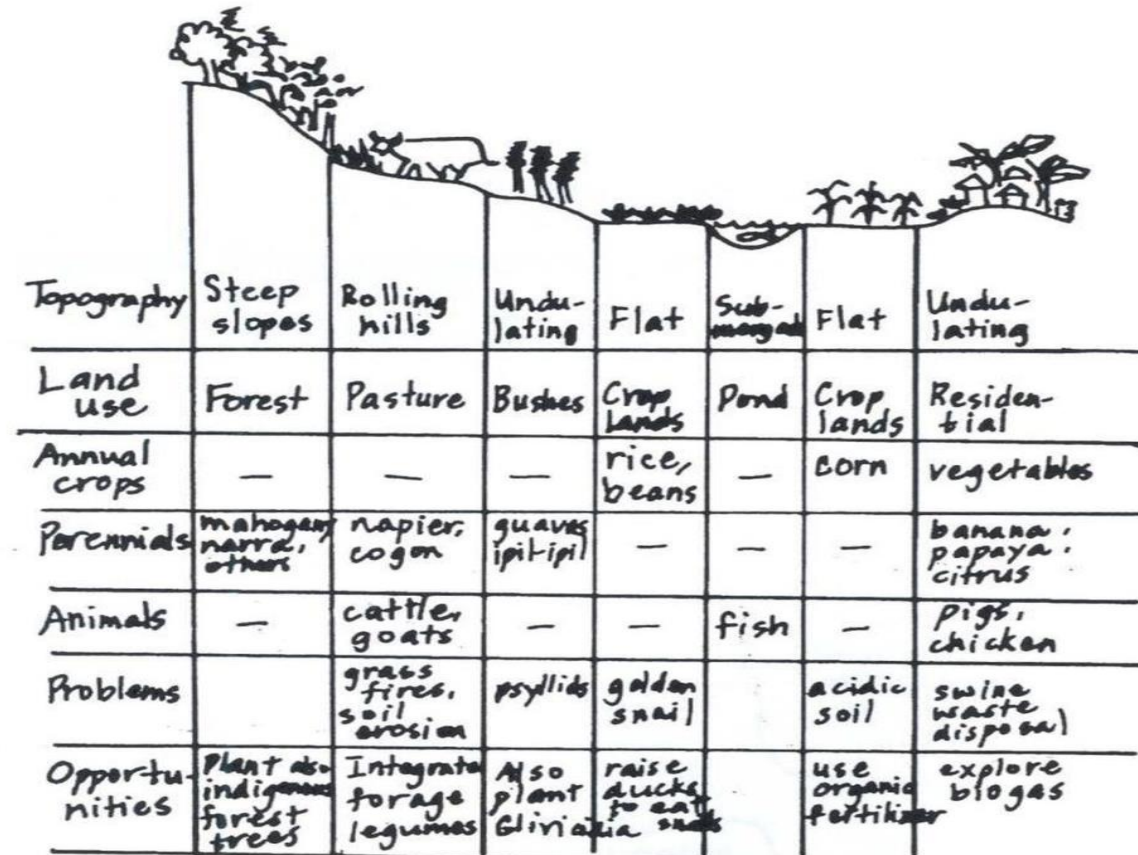 Topography
Steep
slopes
Rolling
hills
Undu-
lating
Flat
Sub-
merged
Flat
Undu-
lating
Land
use
Forest
Pasture
Bushes
Crop
lands
Pond
Crop
lands
Residen-
tial
Annual
crops
—
—
—
rice,
beans
—
corn
vegetables
Perennials
mahogany
narra,
others
napier,
cogon
guavas
ipil-ipil
—
—
—
banana,
papaya,
citrus
Animals
—
cattle,
goats
—
—
fish
—
pigs,
chicken
Problems
grass
fires,
soil
erosion
psyllids
golden
snail
acidic
soil
swine
waste
disposal
Opportu-
nities
Plant also
indigenous
forest
trees
Integrate
forage
legumes
Also
plant
raise
ducks
to eat
snails
use
organic
fertilizer
explore
biogas